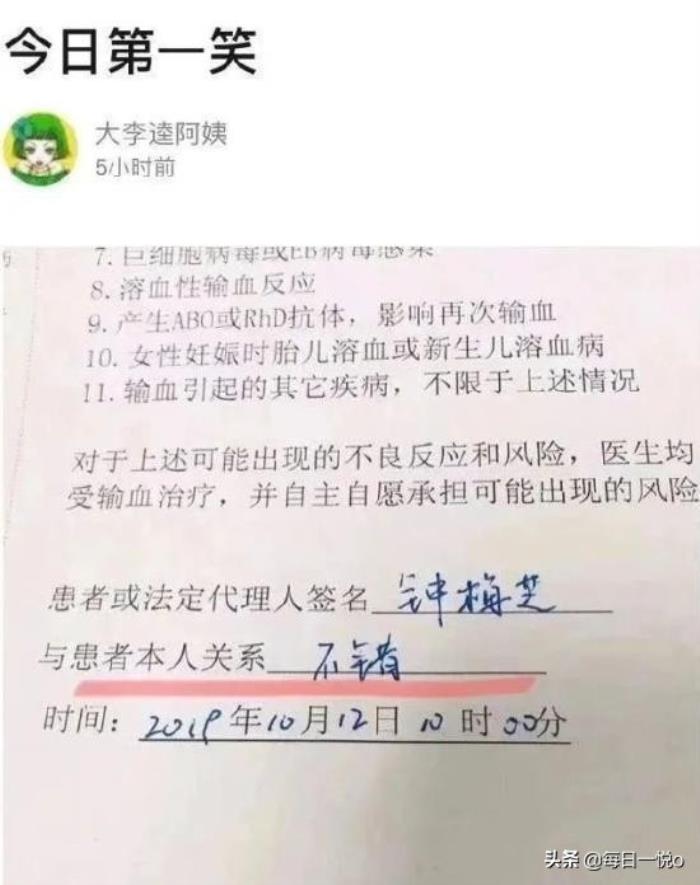 今日第一笑
大李逵阿姨
5小时前
7. 巨细胞病毒或EB病毒感染
8. 溶血性输血反应
9. 产生ABO或RhD抗体，影响再次输血
10. 女性妊娠时胎儿溶血或新生儿溶血病
11. 输血引起的其它疾病，不限于上述情况
对于上述可能出现的不良反应和风险，医生均
受输血治疗，并自主自愿承担可能出现的风险
患者或法定代理人签名 钟梅芝
与患者本人关系 不错
时间：2019年10月12日 10时00分
头条 @每日一悦o